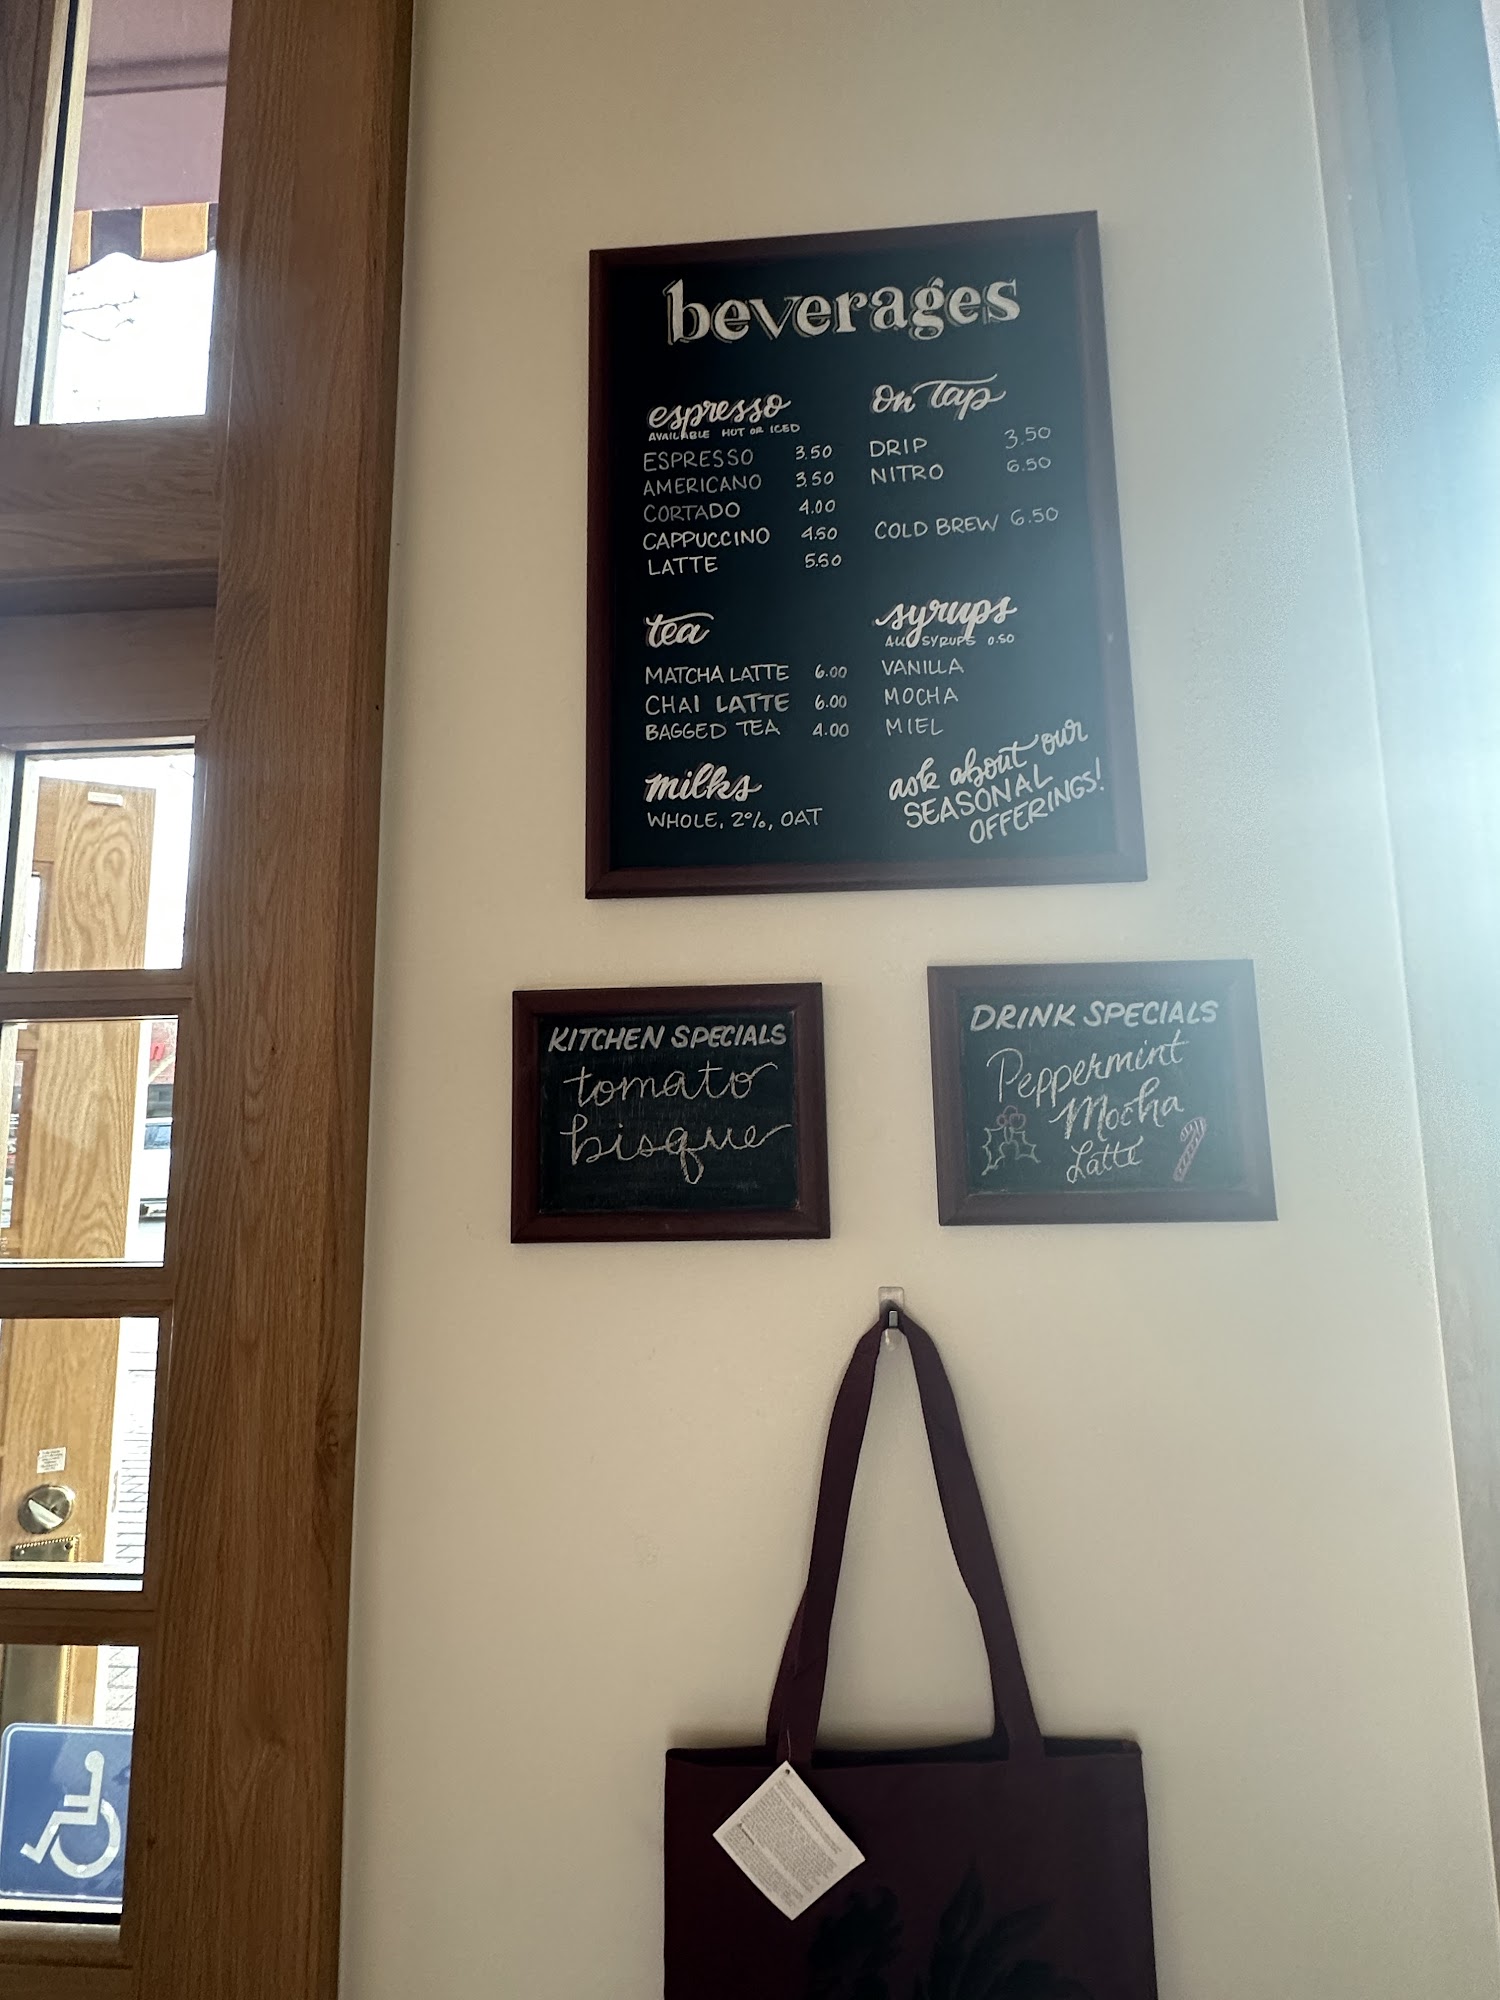 beverages
espresso
AVAILABLE HOT OR ICED
ESPRESSO 3.50
AMERICANO 3.50
CORTADO 4.00
CAPPUCCINO 4.50
LATTE 5.50
on Tap
DRIP 3.50
NITRO 6.50
COLD BREW 6.50
tea
MATCHA LATTE 6.00
CHAI LATTE 6.00
BAGGED TEA 4.00
syrups
ALL SYRUPS 0.50
VANILLA
MOCHA
MIEL
milks
WHOLE, 2%, OAT
ask about our
SEASONAL
OFFERINGS!
KITCHEN SPECIALS
tomato
bisque
DRINK SPECIALS
Peppermint
Mocha
Latte